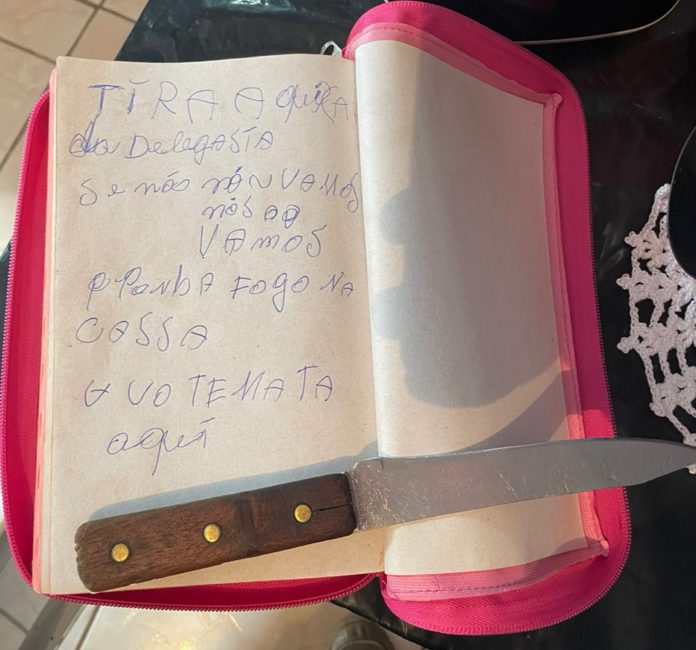 TÍRA A quexA
da DelegASÍA
Se nós nÓN VAMOS
nós aa
VAmOS
pPonhA FOGO NA
CASSA
VO TE MATA
aquí